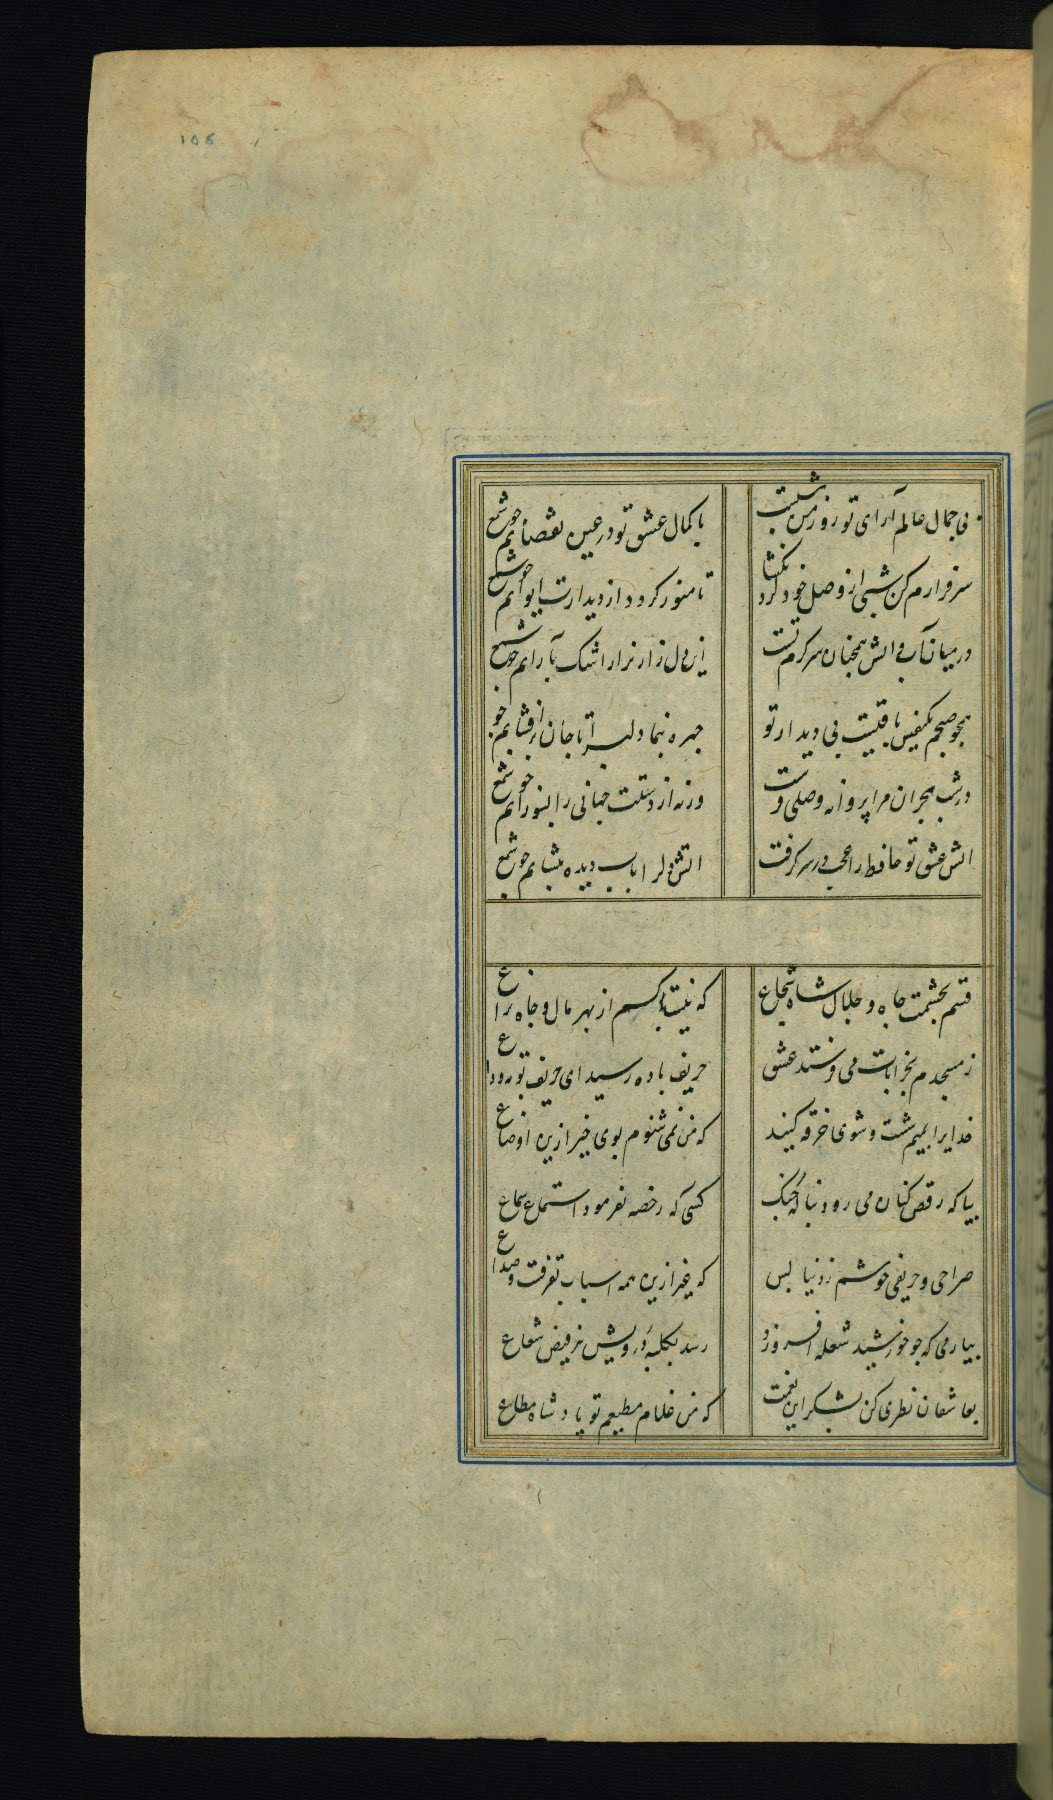 ۱۵۶
بی جمال عالم آرای تو روزم چون شبست
با کمال عشق تو در عین نقصانم چو شمع
سرفرازم کن شبی از وصل خود گردنکشا
تا منور گردد از دیدارت ایوانم چو شمع
در میان آب و اتش همچنان سرکرم تست
این دل زار نزار اشک بارانم چو شمع
همچو صبحم یکنفس باقیست بی دیدار تو
چهره بنما دلبرا تا جان برافشانم چو
در شب هجران مرا پروانه وصلی فرست
ورنه از دستت جهانی را بسوزانم چو شمع
اتش عشق تو حافظ را عجب در سر کرفت
اتش دل را باب دیده بنشانم چو شمع
قسم بحشمت جاه و جلال شاه شجاع
که نیست با کسم از بهر مال و جاه نزاع
ز مسجدم بخرابات می فرستد عشق
حریف باده رسید ای حریف توبه وداع
خدایرا بمیم شست و شوی خرقه کنید
که من نمی شنوم بوی خیر ازین اوضاع
بیا که رقص کنان می رود بناله چنک
کسی که رخصه نفرمود استماع سماع
صراحی و حریفی خوشم ز دنیا بس
که غیر ازین همه اسباب تفرقست و صداع
بیار می که چو خورشید شعله افروزد
رسد بکلبه درویش نیز فیض شعاع
بعاشقان نظری کن بشکر این نعمت
که من غلام مطیعم تو پادشاه مطاع